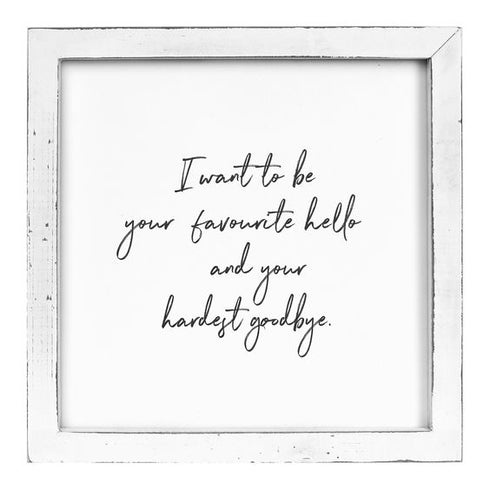 I want to be
your favourite hello
and your
hardest goodbye.